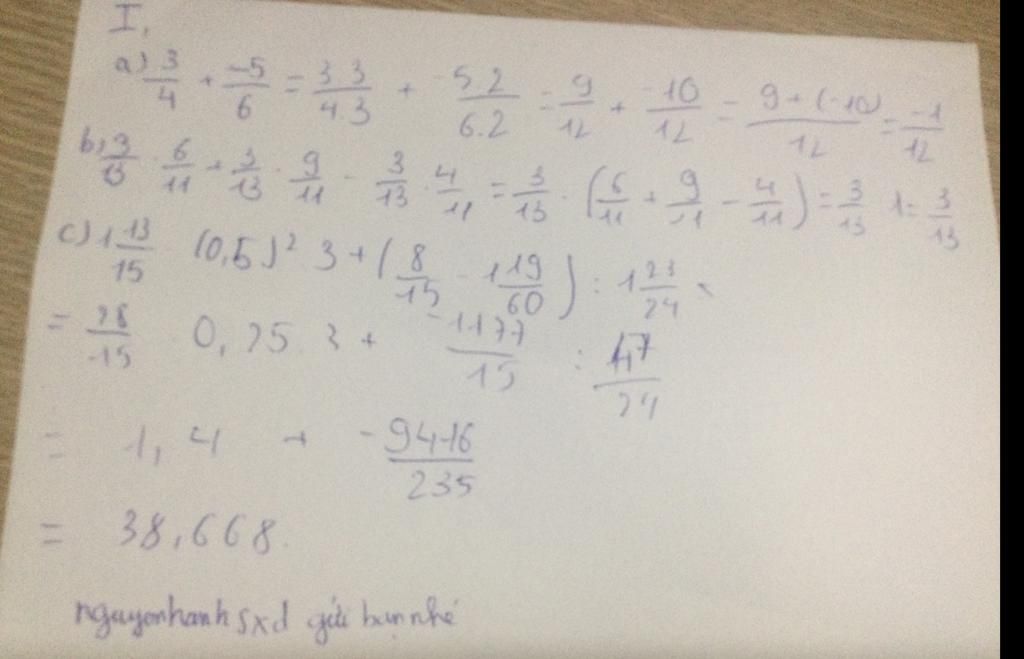 I,
a) 3/4 + -5/6 = 3.3/4.3 + -5.2/6.2 = 9/12 + -10/12 = 9+(-10)/12 = -1/12
b, 3/13 . 6/11 + 3/13 . 9/11 - 3/13 . 4/11 = 3/13 . (6/11 + 9/11 - 4/11) = 3/13 . 1 = 3/13
c) 1 13/15 . (0,5)² 3 + (8/15 - 1 19/60) : 1 23/24
= 28/15 . 0,25 . 3 + -1177/15 : 47/24
= 1,4 + -9416/235
= 38,668.
nguyenhanhsxd gửi bạn nhé